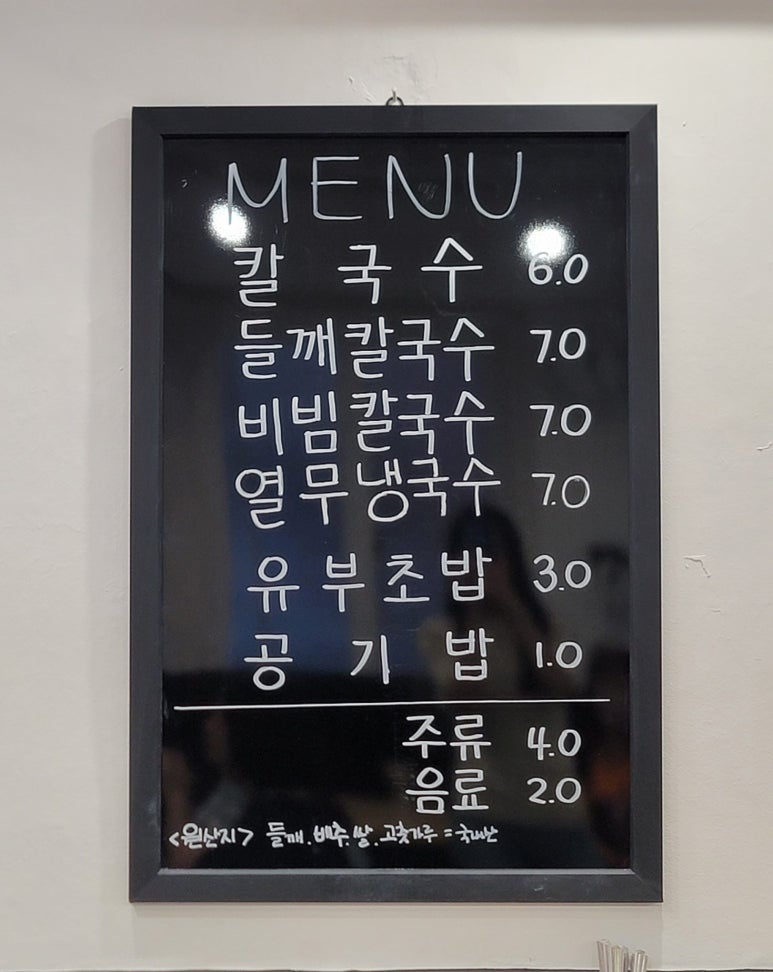 MENU
칼 국 수 6.0
들깨칼국수 7.0
비빔칼국수 7.0
열무냉국수 7.0
유부초밥 3.0
공 기 밥 1.0
주류 4.0
음료 2.0
<원산지> 들깨. 배추. 쌀. 고춧가루 = 국내산